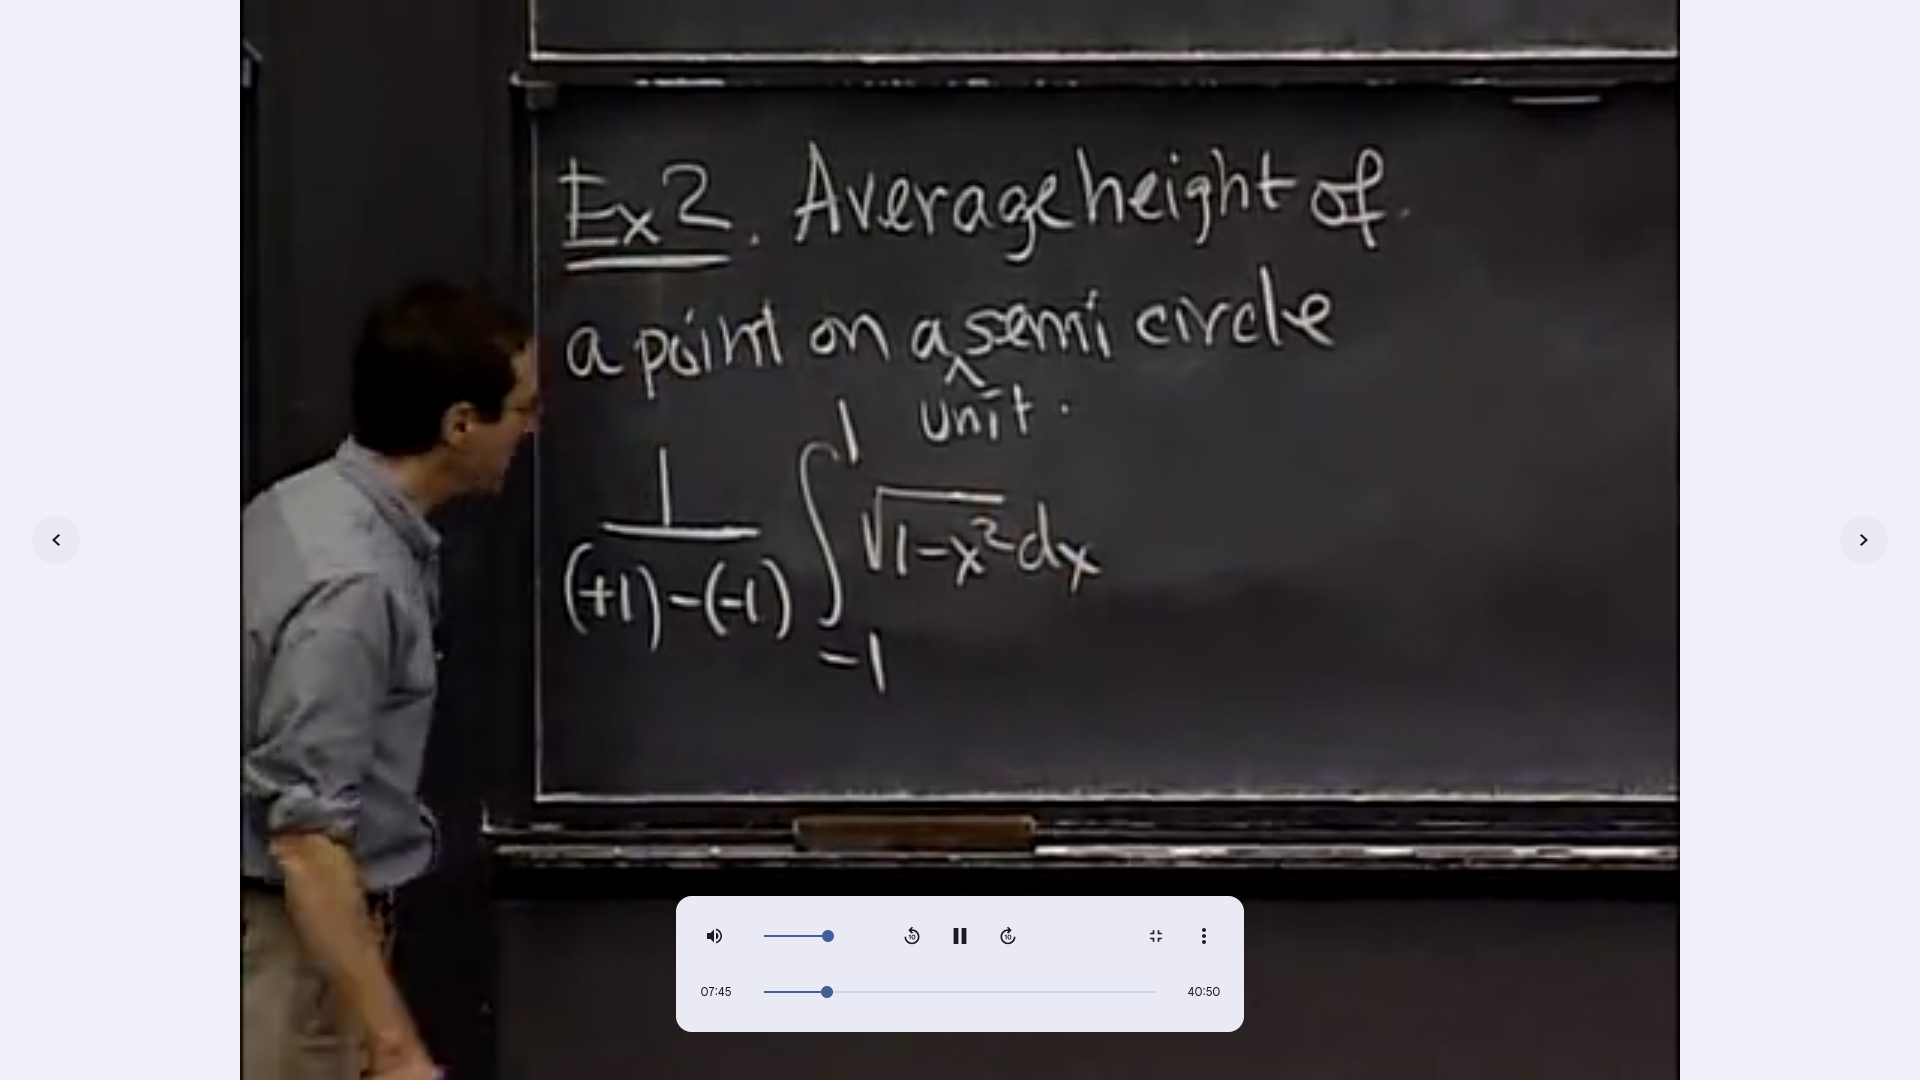 Ex 2. Average height of
a point on a semi circle
^
unit.
1 / ((+1)-(-1)) ∫_{-1}^{1} √(1-x²) dx
10 10
07:45 40:50